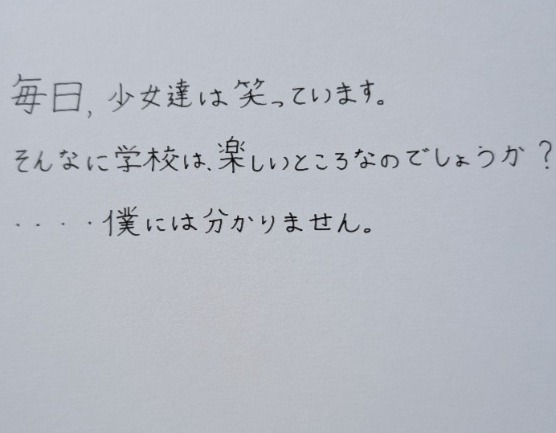 毎日, 少女達は笑っています。
そんなに学校は、楽しいところなのでしょうか？
・・・・僕には分かりません。